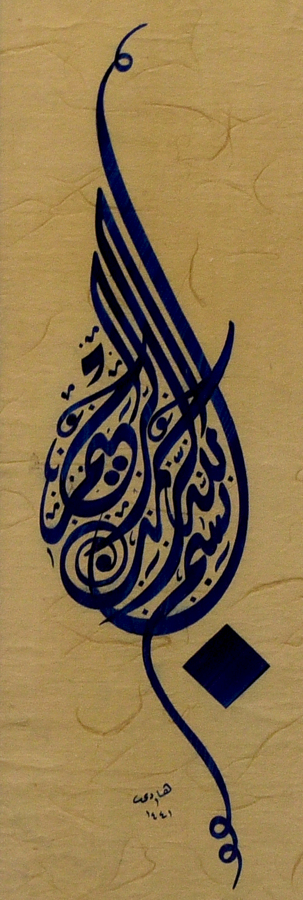 بسم الله الرحمن الرحيم
١٤٤١